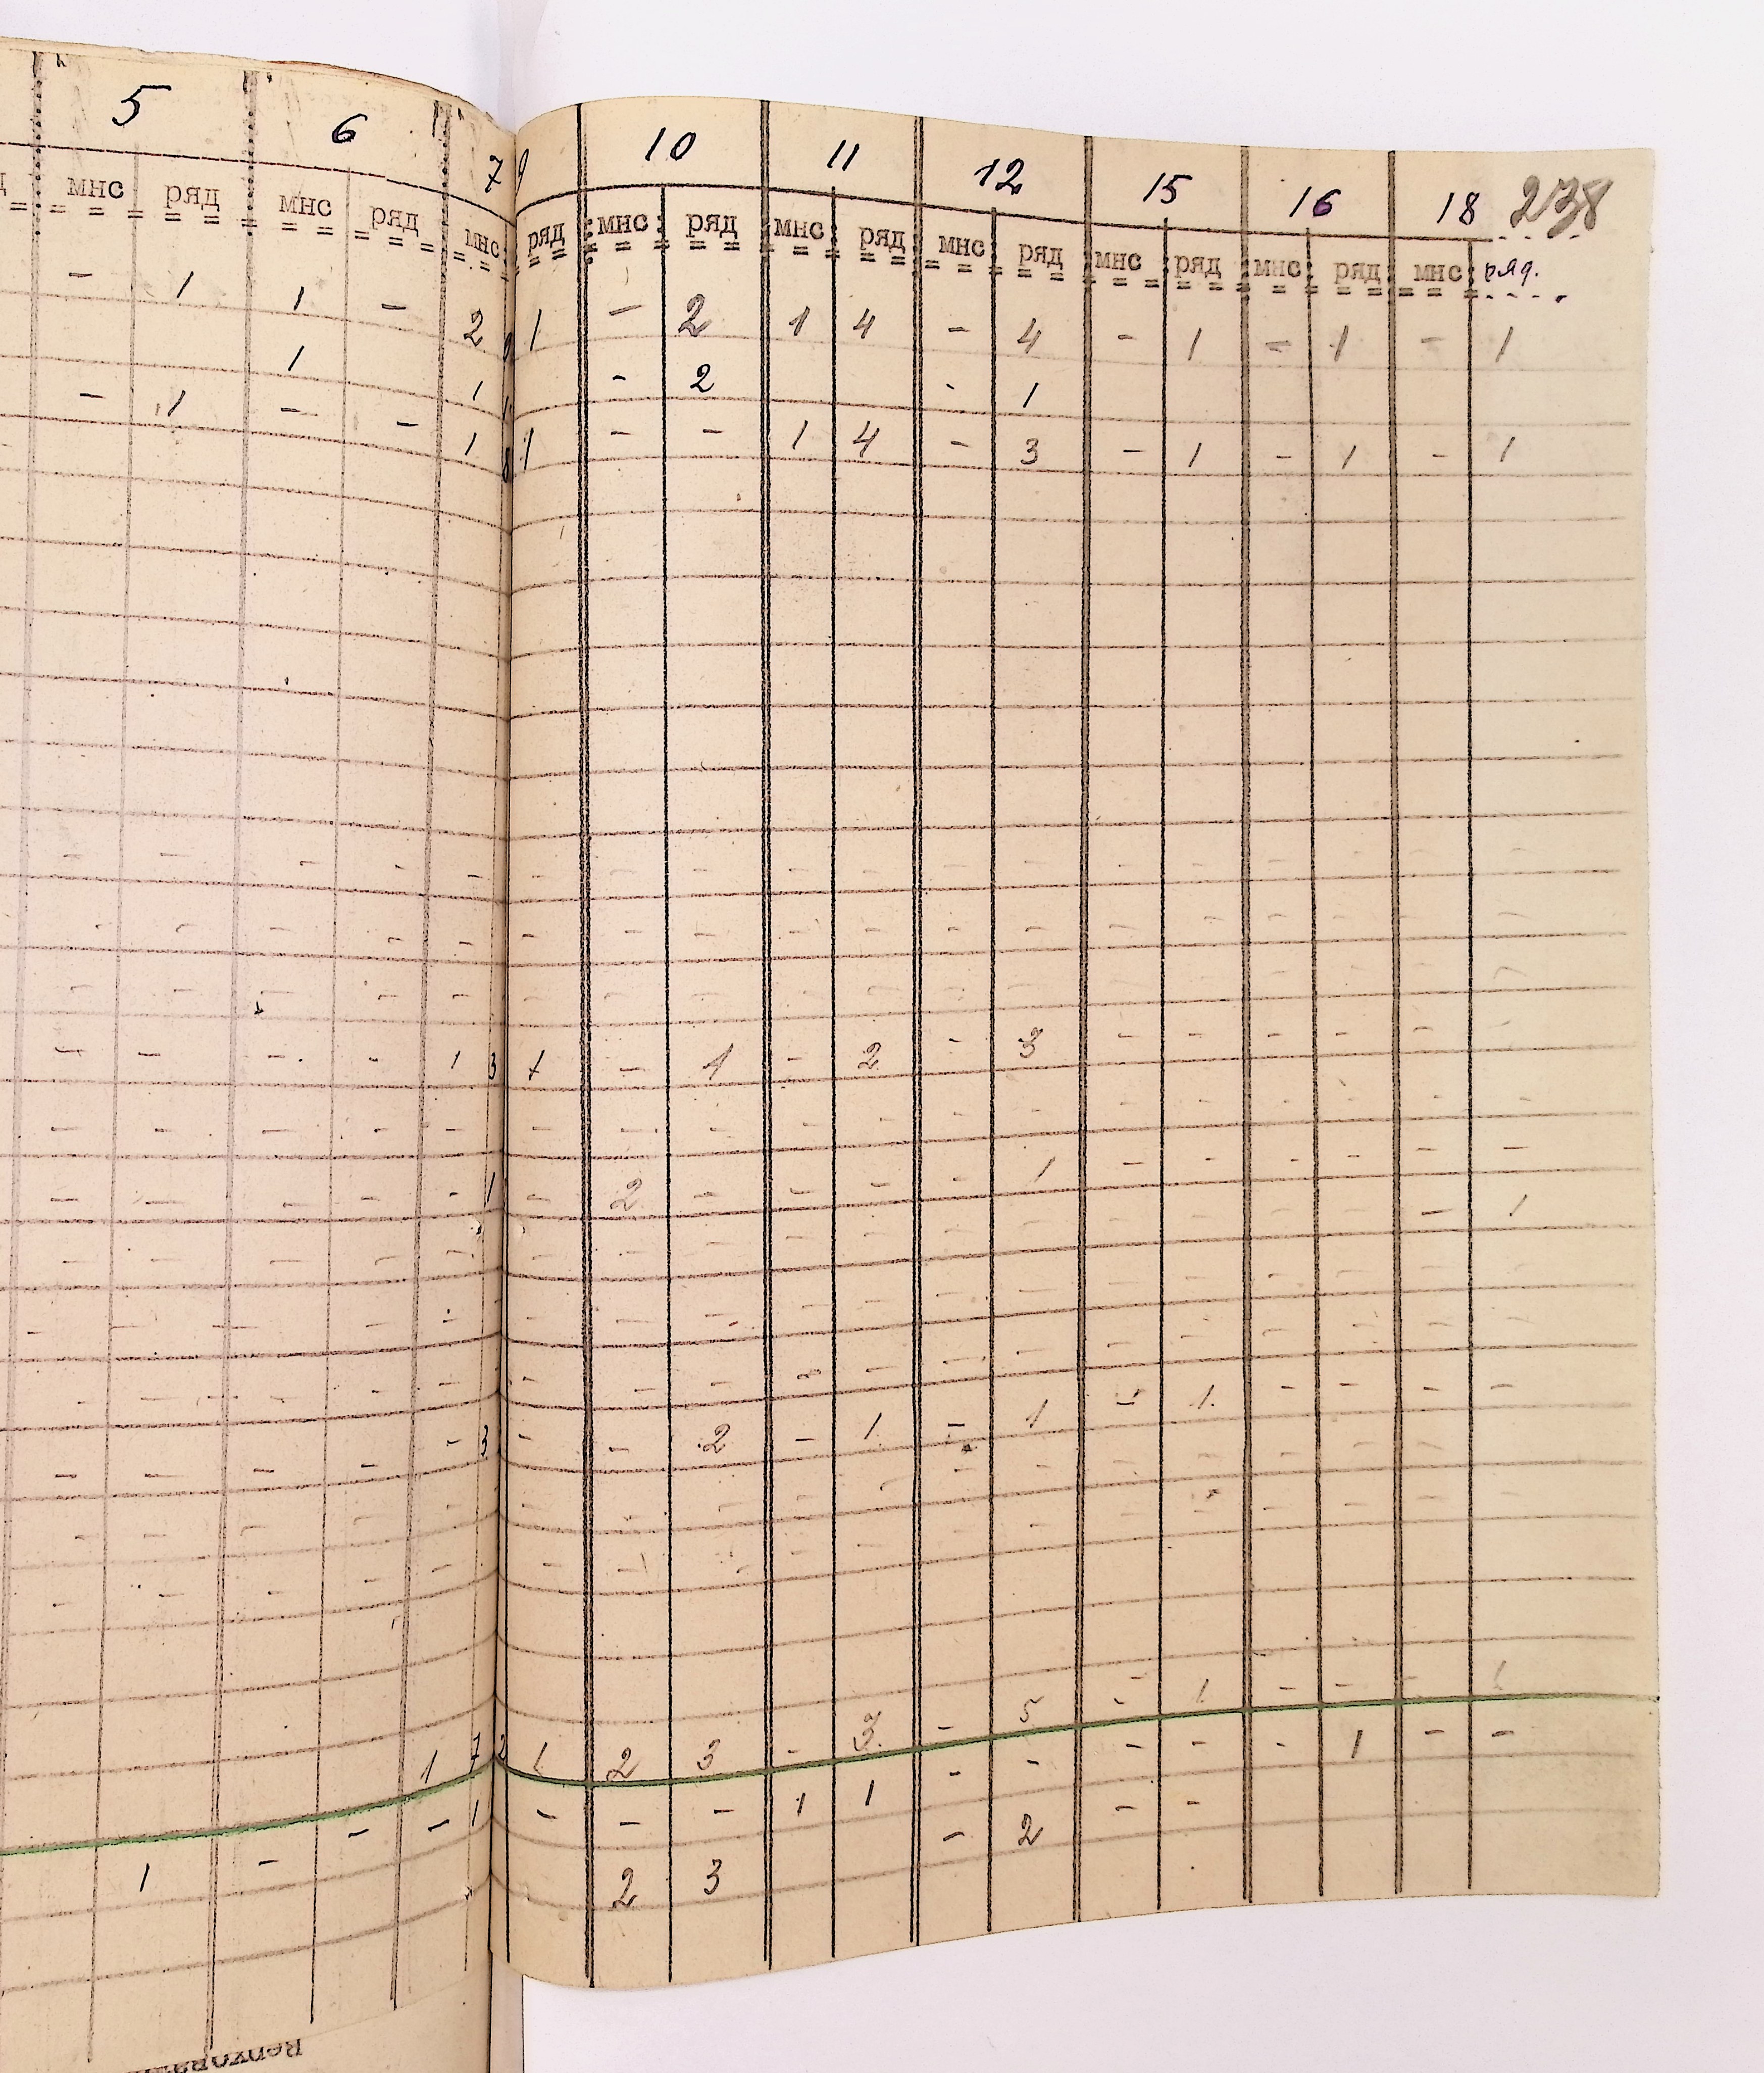 5 6 7 9 10 11 12 15 16 18 238
мнс ряд мнс ряд мнс ряд мнс ряд мнс ряд мнс ряд мнс ряд мнс ряд мнс ряд.
- 1 1 - 2 1 - 2 1 4 - 4 - 1 - 1 - 1
1 1 - 2 - 1
- 1 - - 1 1 - - 1 4 - 3 - 1 - 1 - 1
- - - - - - - - - - - - - - - - - -
- - - - - - - - - - - - - - - - - -
- - - - - - - - - - - - - - - - - -
- - - - 1 3 1 - 1 - 2 - 3 - - - - - -
- - - - - - - - - - - - - - - - - -
- - - - - 1 - 2 - - - - 1 - - - - - -
- - - - - - - - - - - - - 1
- - - - - - - - - - - - - - - - - -
- - - - - - - - - - - - - - - - - -
- 3 - - 2 - 1 - 1 - 1 - - - -
- - - - - - - - - - - - - - - -
- - - - - - - - - - - - - - - -
1 7 2 1 2 3 - 3 - 5 - 1 - - 1
- - 1 - - - 1 1 - - - - - 1 - -
1 - 2 3 - 2 - -